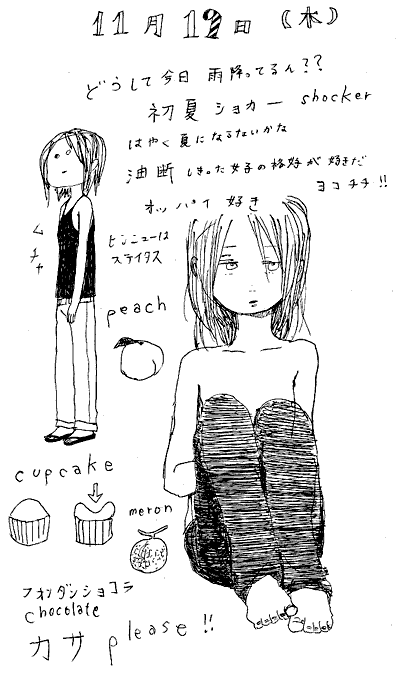 11月19日(木)
どうして今日 雨降ってるん??
初夏 ショカー shocker
はやく夏にならないかな
油断しきった女子の格好が好きだ
ヨコチチ!!
オッパイ 好き
ムチャ
ヒンニューは
ステイタス
peach
cupcake
meron
フォンダンショコラ
chocolate
カサ please!!